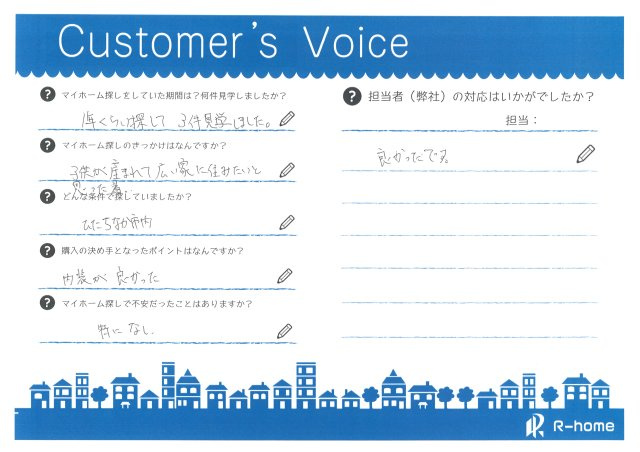 Customer's Voice
マイホーム探しをしていた期間は？何件見学しましたか？
1年くらい探して 3件見学しました。
マイホーム探しのきっかけはなんですか？
子供が産まれて広い家に住みたいと
思った為
どんな条件で探していましたか？
ひたちなか市内
購入の決め手となったポイントはなんですか？
内装が良かった
マイホーム探しで不安だったことはありますか？
特になし
担当者（弊社）の対応はいかがでしたか？
担当：
良かったです。
R-home